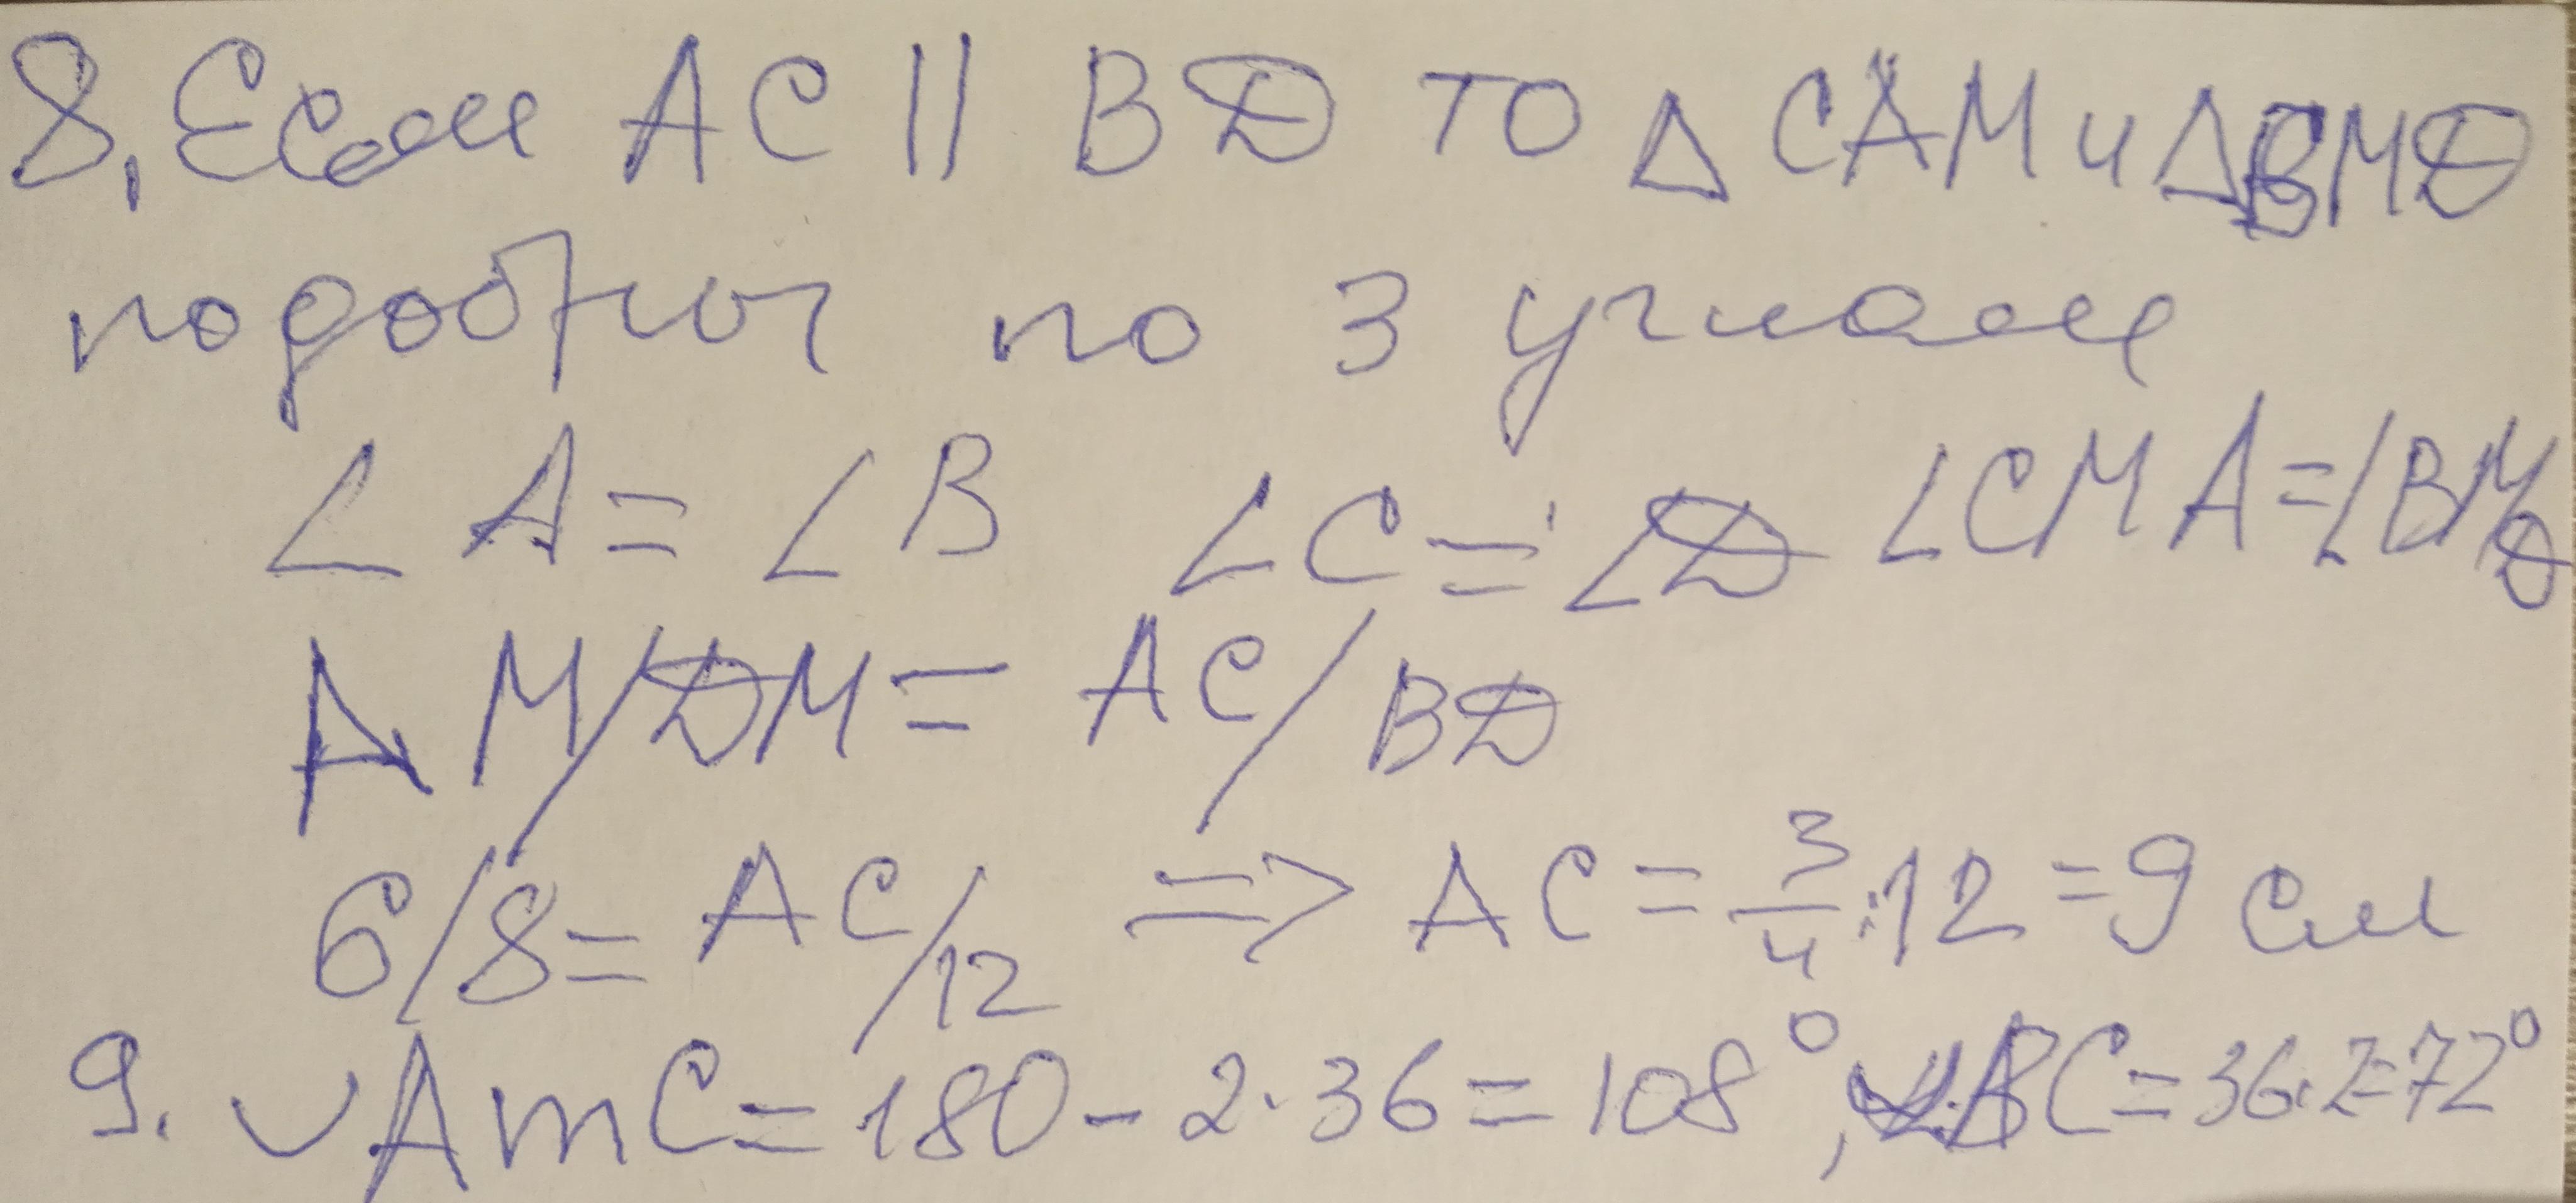 8, Если AC || BD то Δ CAM и ΔBMD
подобны по 3 углам
∠A = ∠B ∠C = ∠D ∠CMA = ∠BMD
AM/DM = AC/BD
6/8 = AC/12 => AC = 3/4 · 12 = 9 см
9. ◡AmC = 180 - 2 · 36 = 108°, BC = 36 · 2 = 72°